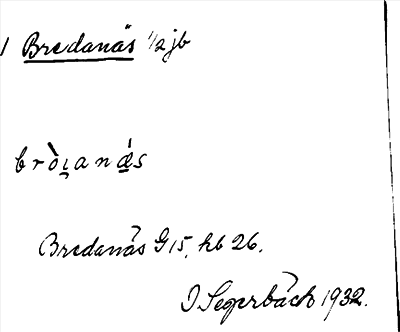 1 Bredanäs 1/2 jb
bròi̯anǽs
Bredanäs G 15, kb 26.
I Segerbäck 1932.